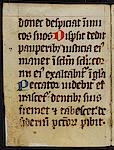 donec despiciat inimi
cos suos Dispsit dedit
pauperibus iusticia ei
manet in sclm scli cor
nu ei exaltabit in gla
Peccator videbit et
irascet dentibz suis
fremet et tabescet de
sideriu pctor pibit